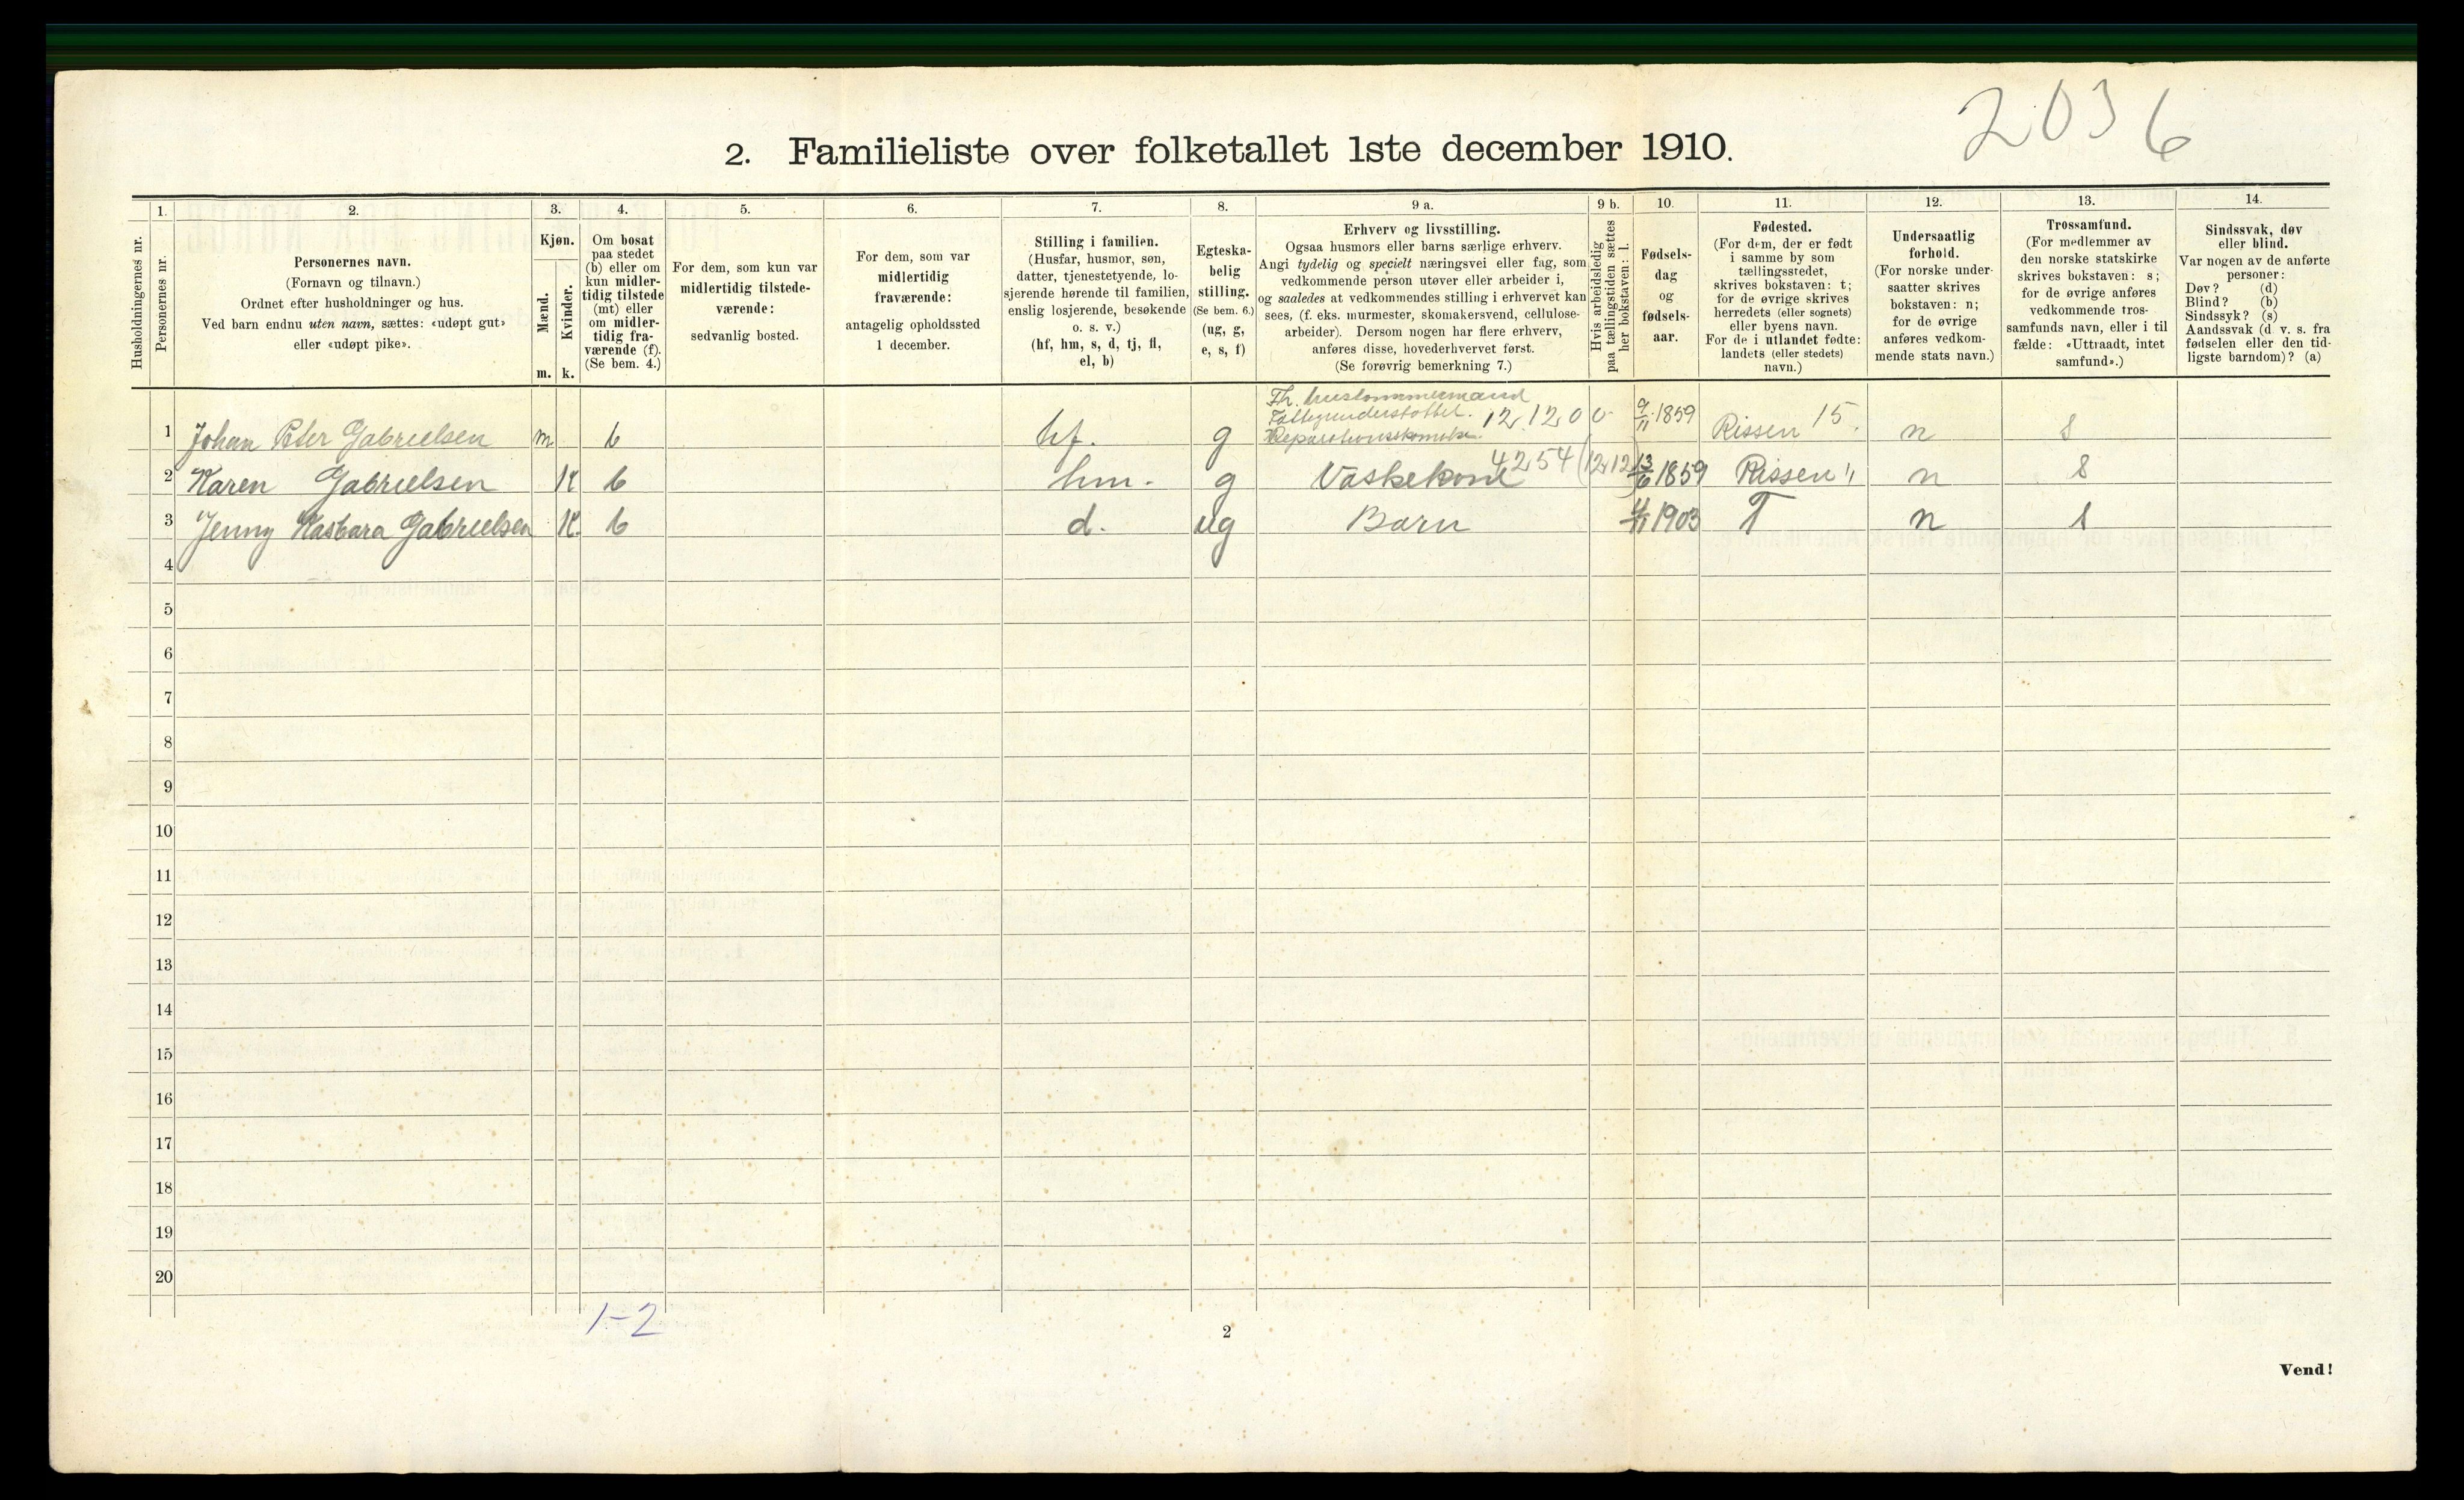 2036
2. Familieliste over folketallet 1ste december 1910.
1. 2. 3. 4. 5. 6. 7. 8. 9 a. 9 b. 10. 11. 12. 13. 14.
Husholdningernes nr.
Personernes nr.
Personernes navn.
(Fornavn og tilnavn.)
Ordnet efter husholdninger og hus.
Ved barn endnu uten navn, sættes: «udøpt gut»
eller «udøpt pike».
Kjøn.
Mænd.
Kvinder.
m. k.
Om bosat
paa stedet
(b) eller om
kun midler-
tidig tilstede
(mt) eller
om midler-
tidig fra-
værende (f).
(Se bem. 4.)
For dem, som kun var
midlertidig tilstede-
værende:
sedvanlig bosted.
For dem, som var
midlertidig
fraværende:
antagelig opholdssted
1 december.
Stilling i familien.
(Husfar, husmor, søn,
datter, tjenestetyende, lo-
sjerende hørende til familien,
enslig losjerende, besøkende
o. s. v.)
(hf, hm, s, d, tj, fl,
el, b)
Egteska-
belig
stilling.
(Se bem. 6.)
(ug, g,
e, s, f)
Erhverv og livsstilling.
Ogsaa husmors eller barns særlige erhverv.
Angi tydelig og specielt næringsvei eller fag, som
vedkommende person utøver eller arbeider i,
og saaledes at vedkommendes stilling i erhvervet kan
sees, (f. eks. murmester, skomakersvend, cellulose-
arbeider). Dersom nogen har flere erhverv,
anføres disse, hovederhvervet først.
(Se forøvrig bemerkning 7.)
Hvis arbeidsledig
paa tællingstiden sættes
her bokstaven: l.
Fødsels-
dag
og
fødsels-
aar.
Fødested.
(For dem, der er født
i samme by som
tællingsstedet,
skrives bokstaven: t;
for de øvrige skrives
herredets (eller sognets)
eller byens navn.
For de i utlandet fødte:
landets (eller stedets)
navn.)
Undersaatlig
forhold.
(For norske under-
saatter skrives
bokstaven: n;
for de øvrige
anføres vedkom-
mende stats navn.)
Trossamfund.
(For medlemmer av
den norske statskirke
skrives bokstaven: s;
for de øvrige anføres
vedkommende tros-
samfunds navn, eller i til
fælde: «Uttraadt, intet
samfund».)
Sindssvak, døv
eller blind.
Var nogen av de anførte
personer:
Døv? (d)
Blind? (b)
Sindssyk? (s)
Aandssvak (d. v. s. fra
fødselen eller den tid-
ligste barndom)? (a)
1 Johan Peter Gabrielsen m. b hf. g 12.12.0 0 9/11 1859 Rissen 15. n s
2 Karen Gabrielsen K b hm. g Vaskekone 4254 (12,12) 13/6 1859 Rissen " n s
3 Jenny Gabrielsen K. b d. ug Barn 1903 T n s
4
5
6
7
8
9
10
11
12
13
14
15
16
17
18
19
20
1-2
2
Vend!